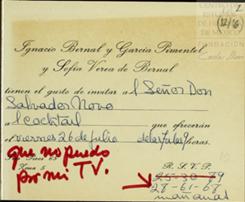 Ignacio Bernal y García Pimentel
y Sofía Verea de Bernal
tienen el gusto de invitar a l Señor Don
Salvador Novo
al cocktail que ofrecerán
el viernes 26 de julio de las 7 a 9 horas
que no puedo
por mi TV.
R. S. V. P.
28-61-68
mañanas